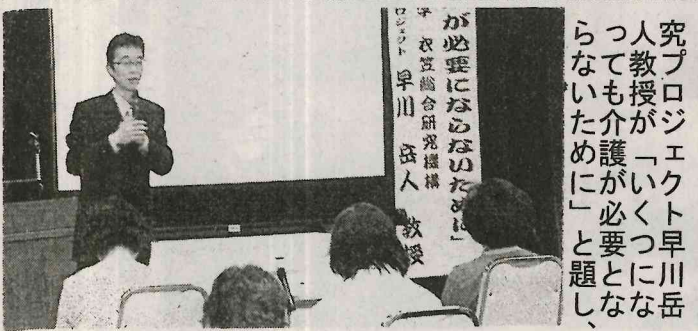 究プロジェクト早川岳
人教授が「いくつにな
っても介護が必要とな
らないために」と題し、
が必要にならないために」
衣笠総合研究機構
ロジェクト 早川 岳人 教授